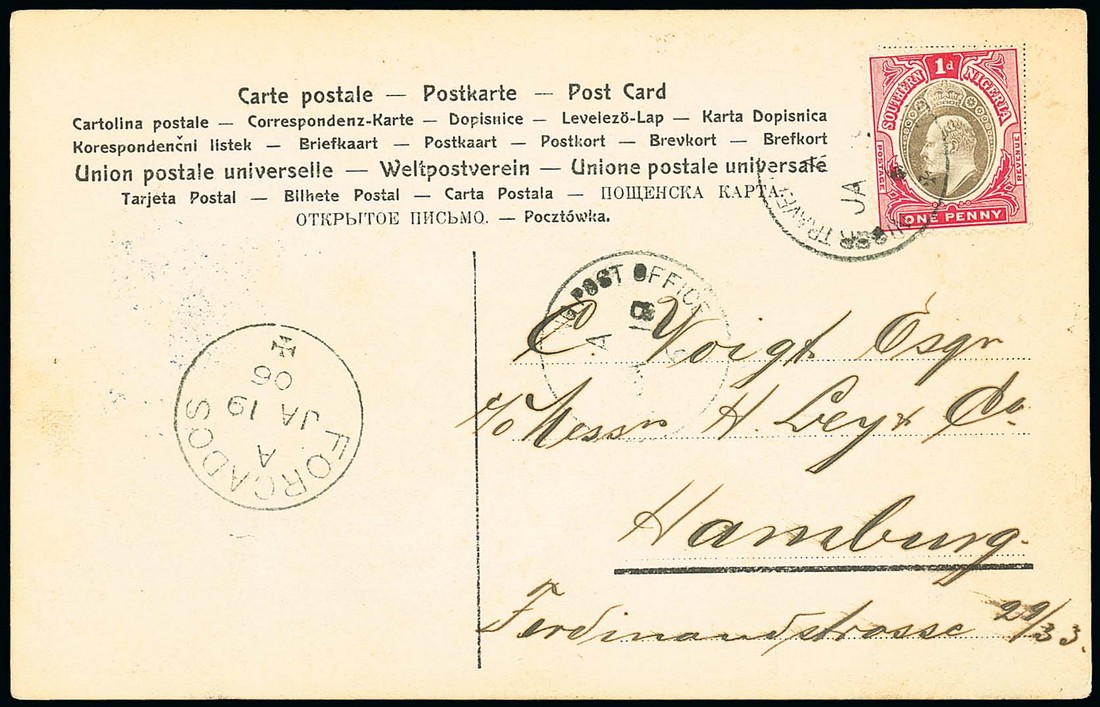 Carte postale — Postkarte — Post Card
Cartolina postale — Correspondenz-Karte — Dopisnice — Levelezö-Lap — Karta Dopisnica
Korespondenčni listek — Briefkaart — Postkaart — Postkort — Brevkort — Brefkort
Union postale universelle — Weltpostverein — Unione postale universale
Tarjeta Postal — Bilhete Postal — Carta Postala — ПОЩЕНСКА КАРТА.
ОТКРЫТОЕ ПИСЬМО. — Pocztówka.
1d
SOUTHERN NIGERIA
POSTAGE
REVENUE
ONE PENNY
JA
POST OFFICE
A
C. Voigt Esqr
c/o Messrs H. Ley & Co
Hamburg.
Ferdinandstrasse 29/33.
FORCADOS
A
JA 19
06